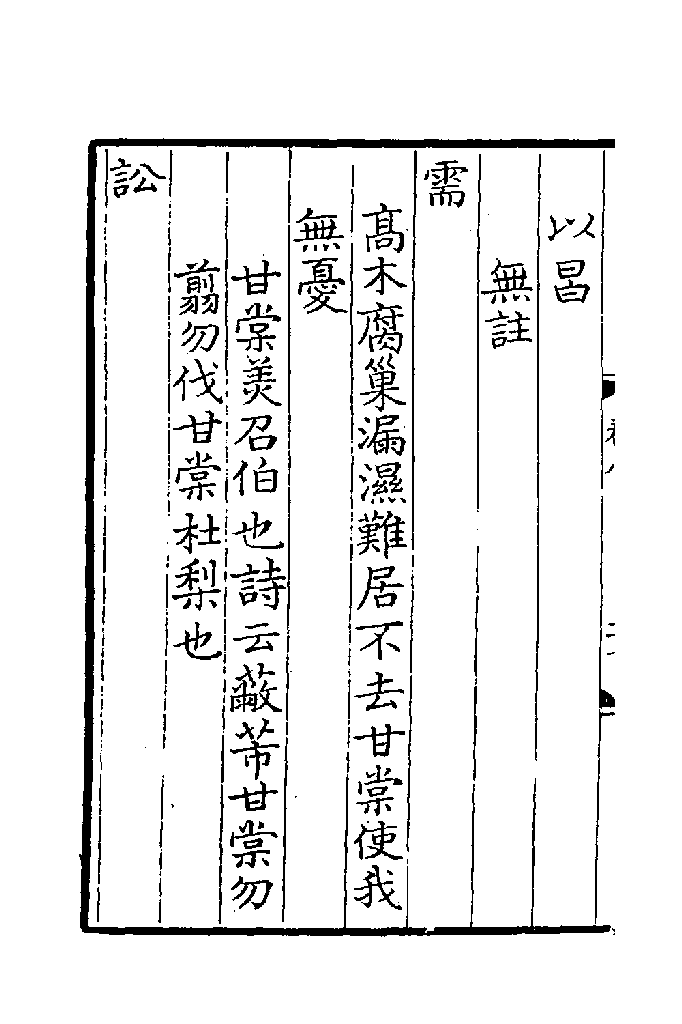 以昌
無註
需
髙木腐巢漏濕難居不去甘棠使我
無憂
甘棠羙召伯也詩云蔽芾甘棠勿
翦勿伐甘棠杜梨也
訟